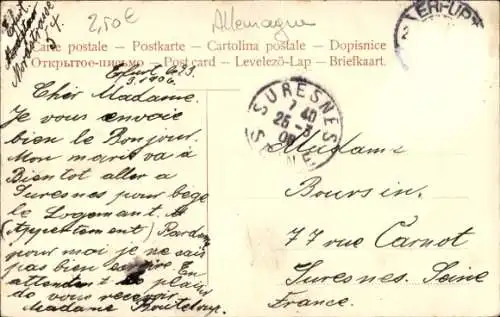 Erfurt
Moltkestrasse
34
2,50€
Allemagne
ERFURT
Carte postale – Postkarte – Cartolina postale – Dopisnice
Открытое-письмо – Post card – Levelező-Lap – Briefkaart.
Erfurt 23.
3.1906.
Cher Madame.
Je vous envoie
bien le Bonjour.
Mon marit va à
Bientot aller a
Suresnes pour
le Logemant.
(Appertement) Pardon
pour moi je ne sais
pas bien ecrire. En
attendent le plaisir
de vous recevoir
Madame
SURESNES
7 40
25 -3
06
SEINE
Madame
Boursin.
77 rue Carnot
Suresnes. Seine
France.